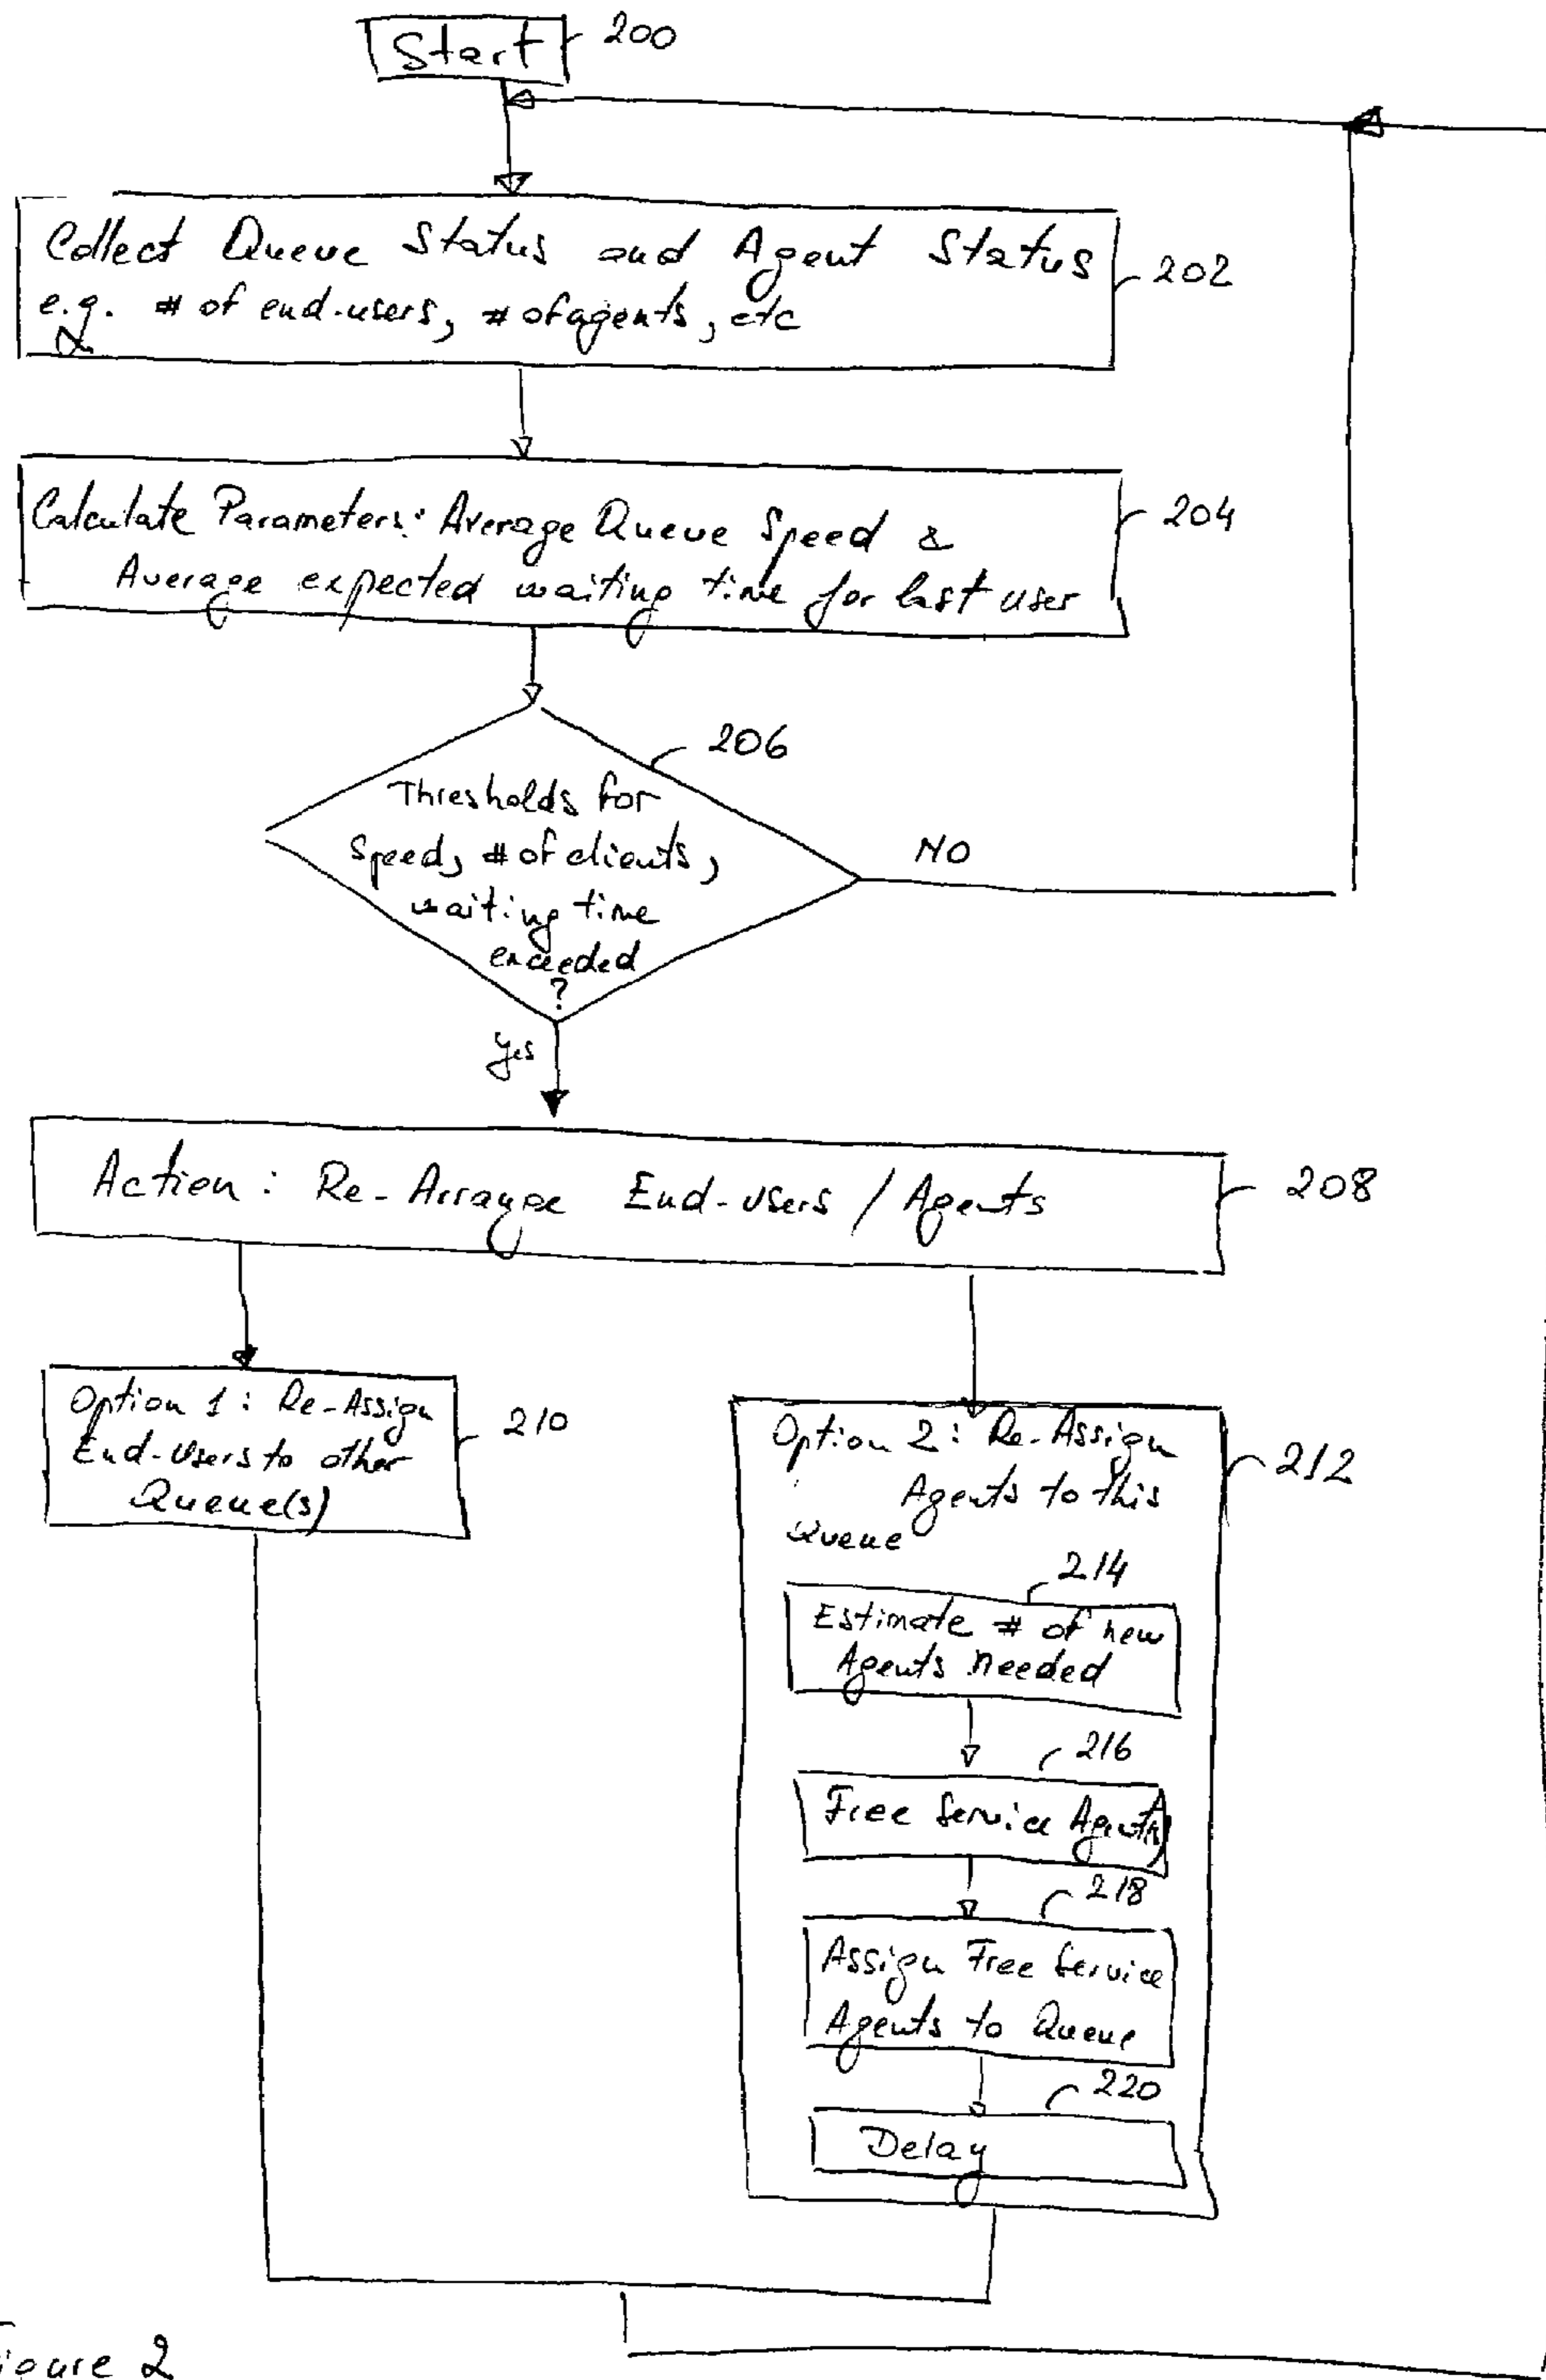 Start 200
Collect Queue Status and Agent Status
e.g. # of end-users, # of agents, etc
202
Calculate Parameters: Average Queue Speed &
Average expected waiting time for last user
204
206
Thresholds for
Speed, # of clients,
waiting time
exceeded
?
NO
Yes
Action: Re-Arrange End-Users / Agents
208
Option 1: Re-Assign
End-Users to other
Queue(s)
210
Option 2: Re-Assign
Agents to this
Queue
212
214
Estimate # of new
Agents needed
216
Free Service Agents
218
Assign Free Service
Agents to Queue
220
Delay
Figure 2